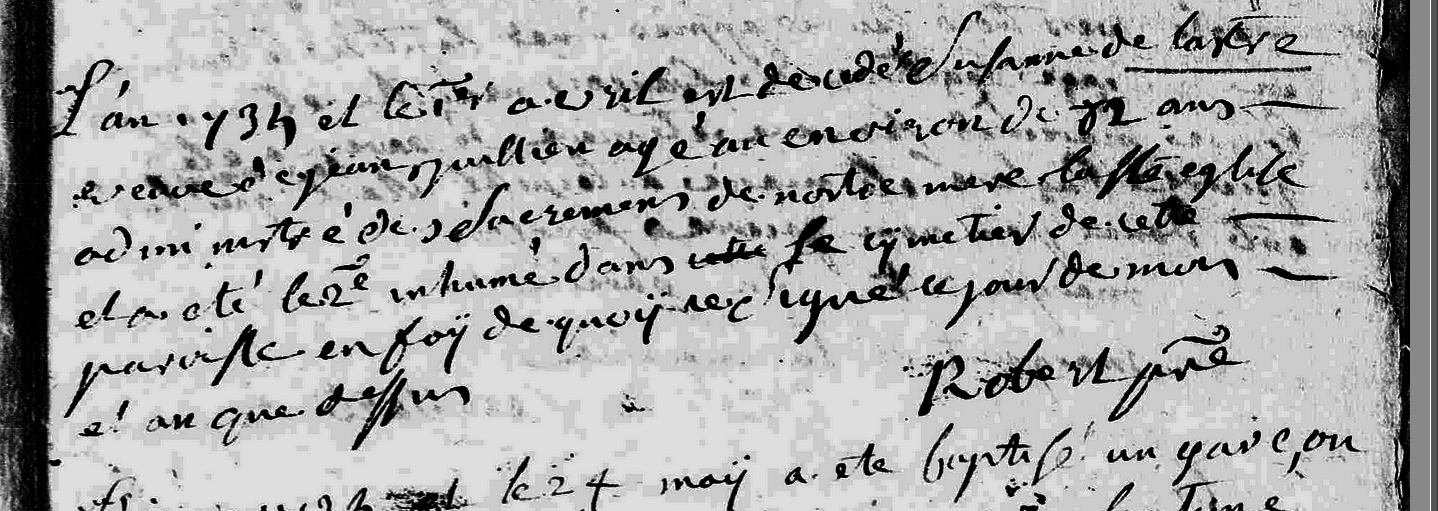 L'an 1734 et le 1er avril est decedé Susanne de lattre
veuve de jean juillien agé au environ de 72 ans
administré des Sacremens de nostre mere la Ste eglise
et a eté le 2e inhumé dans cette le cÿmetier de cette
paroisse en foÿ de quoÿ signé ce jour de mois
et an que dessus
Robert pre
le 24 maÿ a ete baptisé un garçon